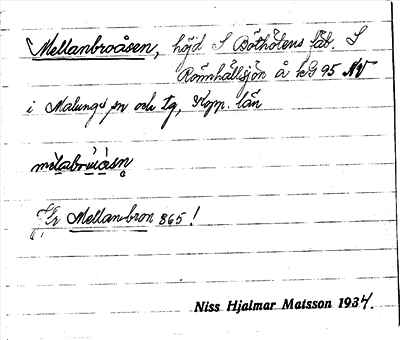 Mellanbroåsen, höjd S Böthölens fäb. S
Rönnhållsjön å kG 95 NV
i Malungs sn och tg, Kopp. län
Mellanbron 865!
Niss Hjalmar Matsson 1934.